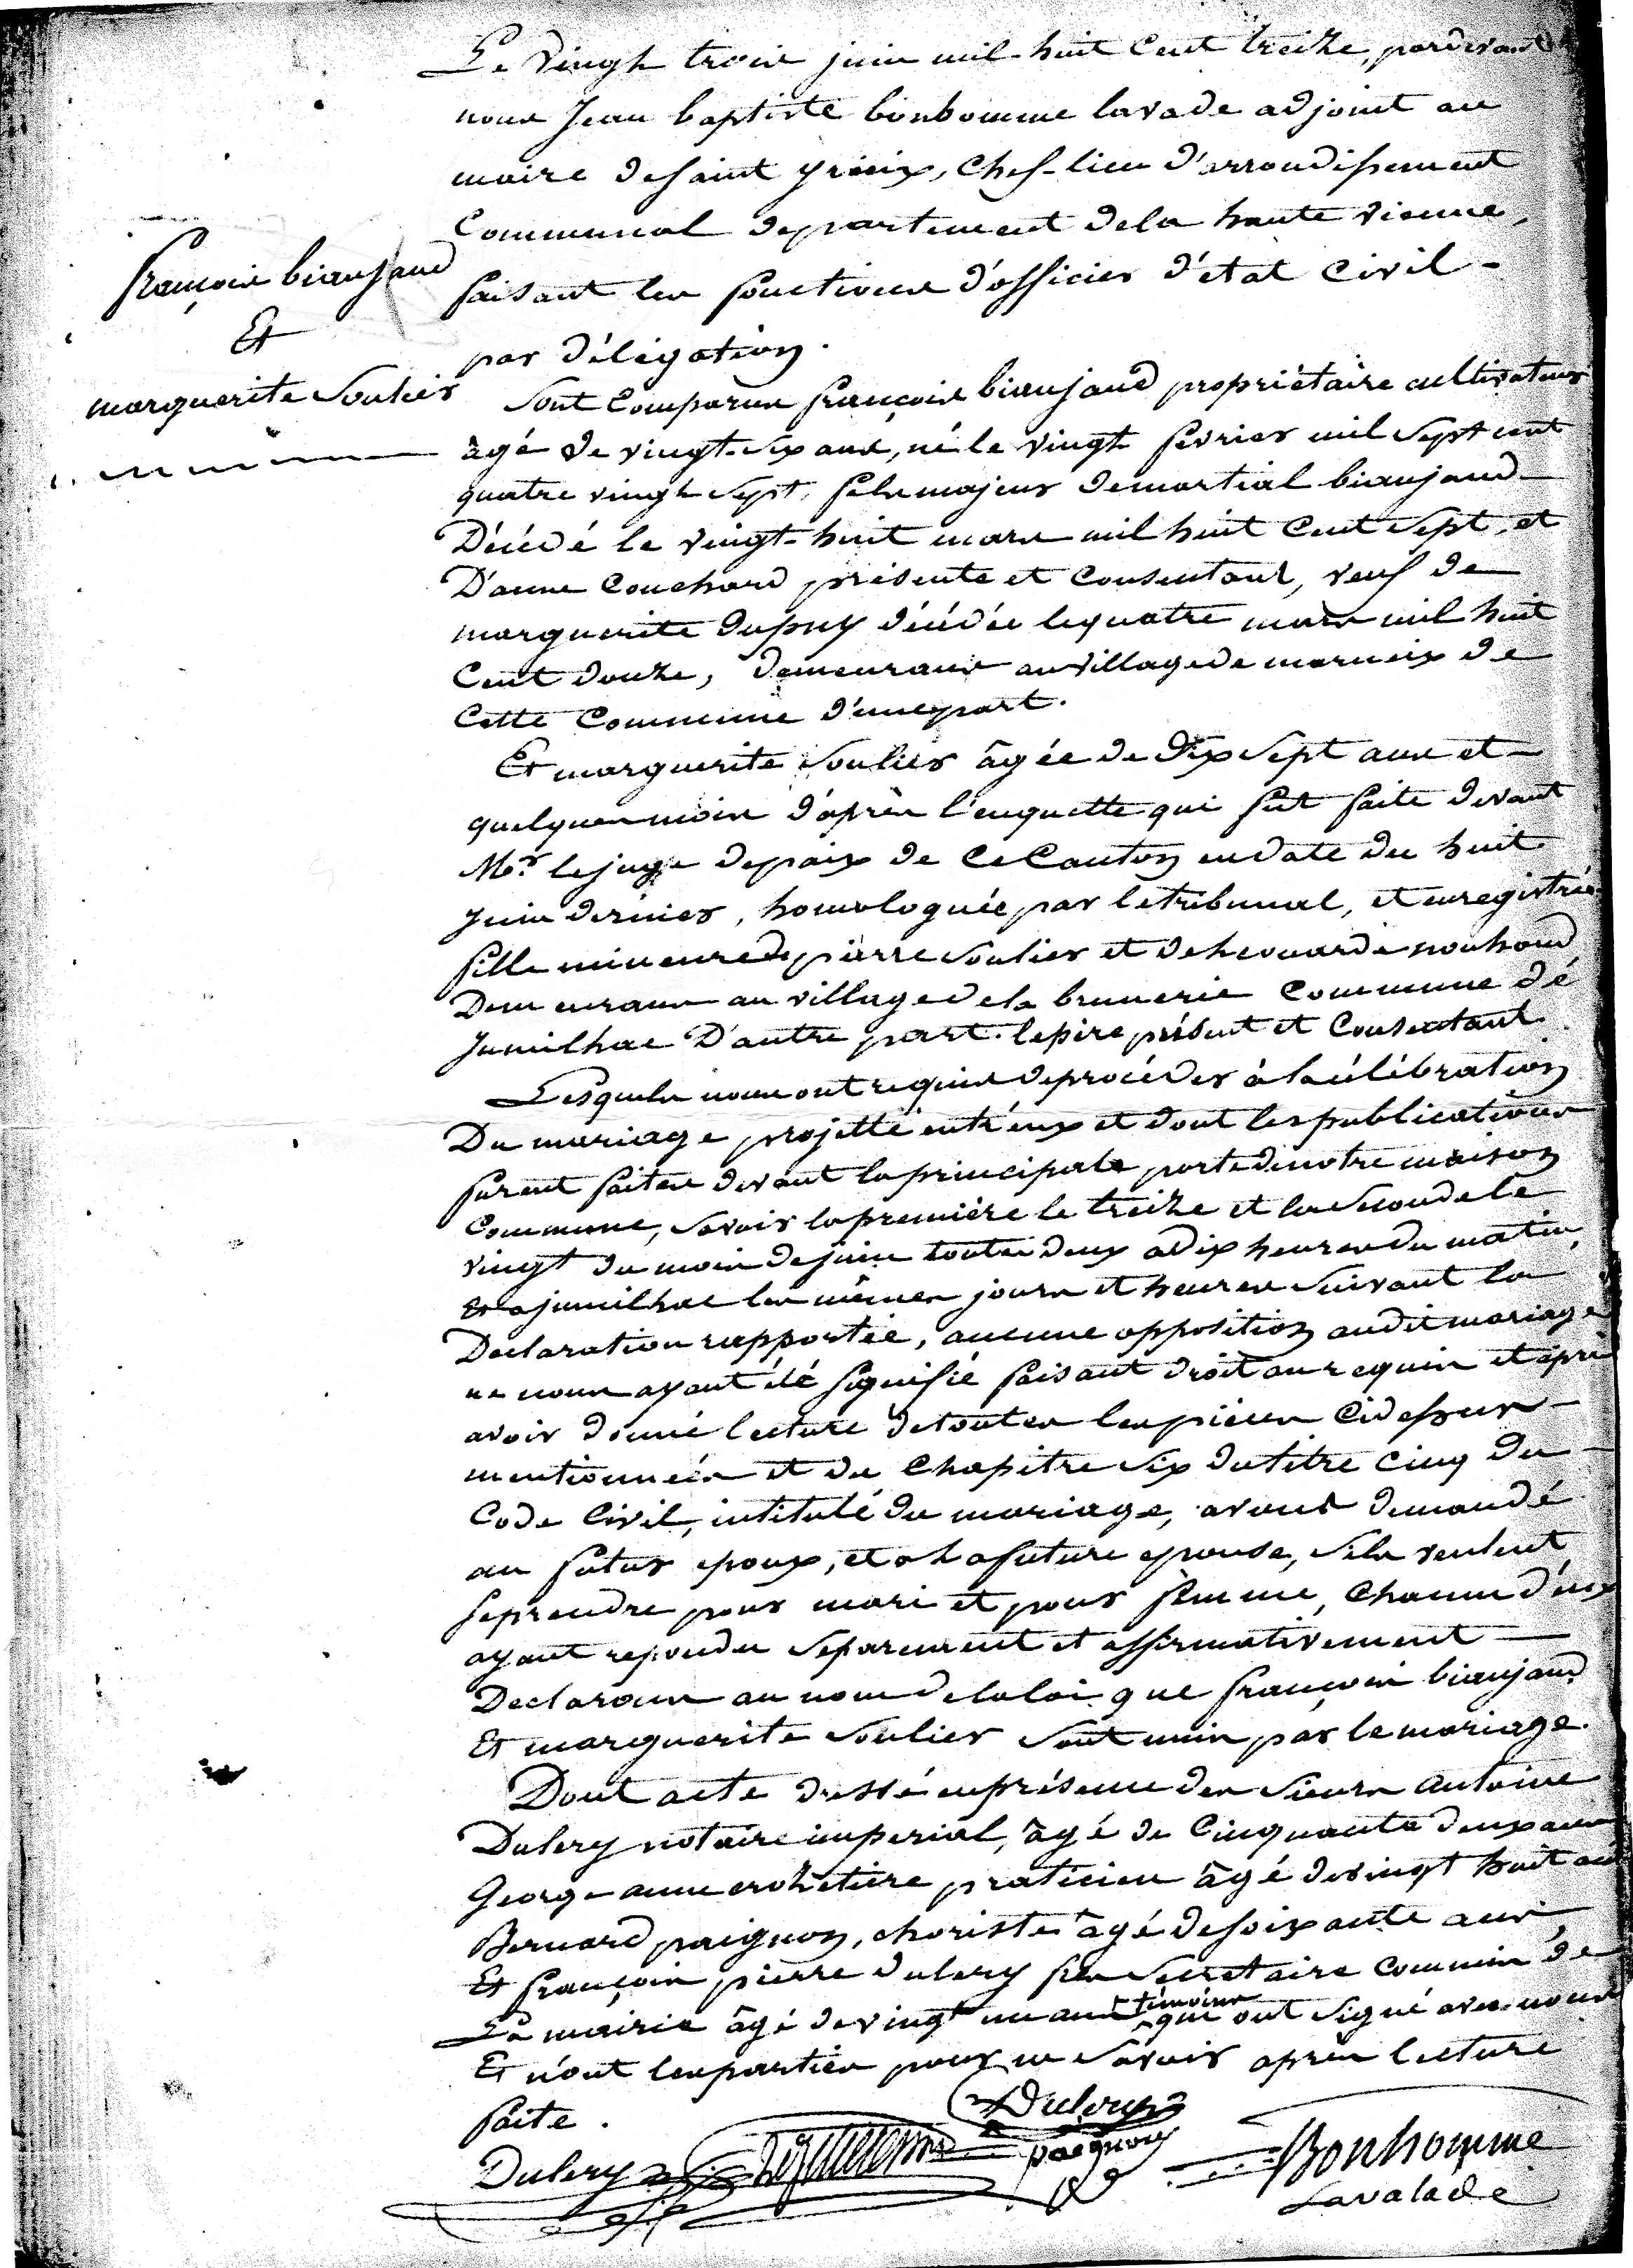 Le vingt trois juin mil huit Cent treize, pardevant
nous Jean baptiste bonhomme lavade adjoint au
maire de saint yrieix, Chef-lieu d'arrondissement
Communal departement dela haute vienne,
faisant les fonctions d'officier d'état Civil -
par délégation.
françois biaujaud
Et
marguerite Soulier
Sont Comparus françois biaujaud propriétaire cultivateur
agé de vingt-six ans, né le vingt fevrier mil sept cent
quatre vingt sept, fils majeur de martial biaujaud
Décédé le vingt-huit mars mil huit Cent sept, et
D'anne Couchaud présente et Consentant, veuf de
marguerite dupuy décédée le quatre mars mil huit
Cent douze, demeurans au village de marneix de
Cette Commune d'une part.
Et marguerite Soulier âgée de dix sept ans et
quelques mois d'après l'enquette qui fut faite devant
Mr. le juge de paix de Ce Canton en date du huit
juin dernier, homologuée par le tribunal, et enregistrée
fille mineure de pierre Soulier et de leonarde nouhaud
Demeurans au village de la brunerie Commune dé
Jumilhac D'autre part. le père présent et Consentant
Lesquels nous ont requis de procéder à la célébration
Du mariage projetté entr'eux et dont les publications
furent faites devant la principale porte de notre maison
Commune, Savoir la première le treize et la Seconde le
vingt du mois de juin toutes deux à dix heures du matin,
Et a jumilhac les mêmes jours et heures Suivant la
Declaration rapportée, aucune opposition audit mariage
ne nous ayant été signifié faisant droit au requis et après
avoir donné lecture de toutes les pièces Cidessus
mentionnées et du Chapitre Six du titre Cinq du
Code Civil, intitulé du mariage, avons demandé
au futur epoux, et a la future epouse, S'ils veulent
se prendre pour mari et pour femme, Chacun d'eux
ayant repondu Séparement et affirmativement
Declarons au nom de la loi que françois biaujaud
Et marguerite Soulier Sont unis par le mariage.
Dont acte dressé en présence des Sieurs antoine
Dulery notaire imperial, âgé de Cinquante deux ans
George anne praticien âgé de vingt huit ans
Bernard paignon, choriste âgé de soixante ans
Et françois pierre dulery fils Secretaire Commis de
La mairie âgé de vingt un ans témoins qui ont Signé avec nous
Et n'ont les parties pour ne Savoir après lecture
faite.
Dulery
Dulery
paignon
Bonhomme
Lavalade